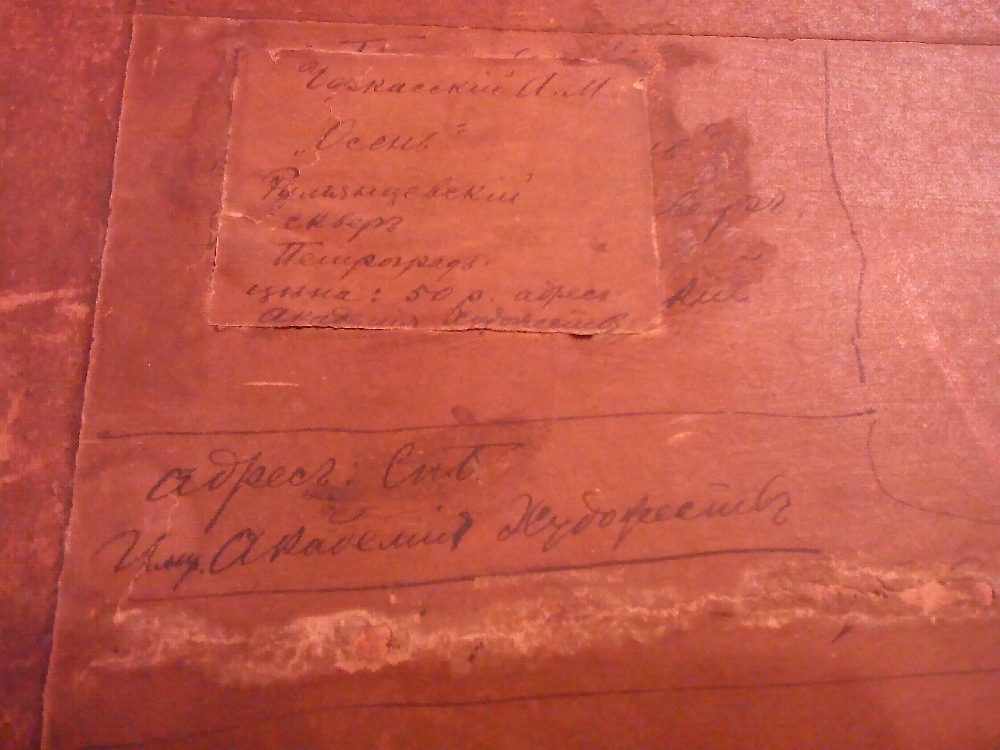 Черкасскій И. М
„Осень"
Румянцевскій
скверъ
Петроградъ.
цѣна: 50 р. адрес
Академія Художествъ
веръ.
кій
адресъ: Спб.
Имп. Академія Художествъ